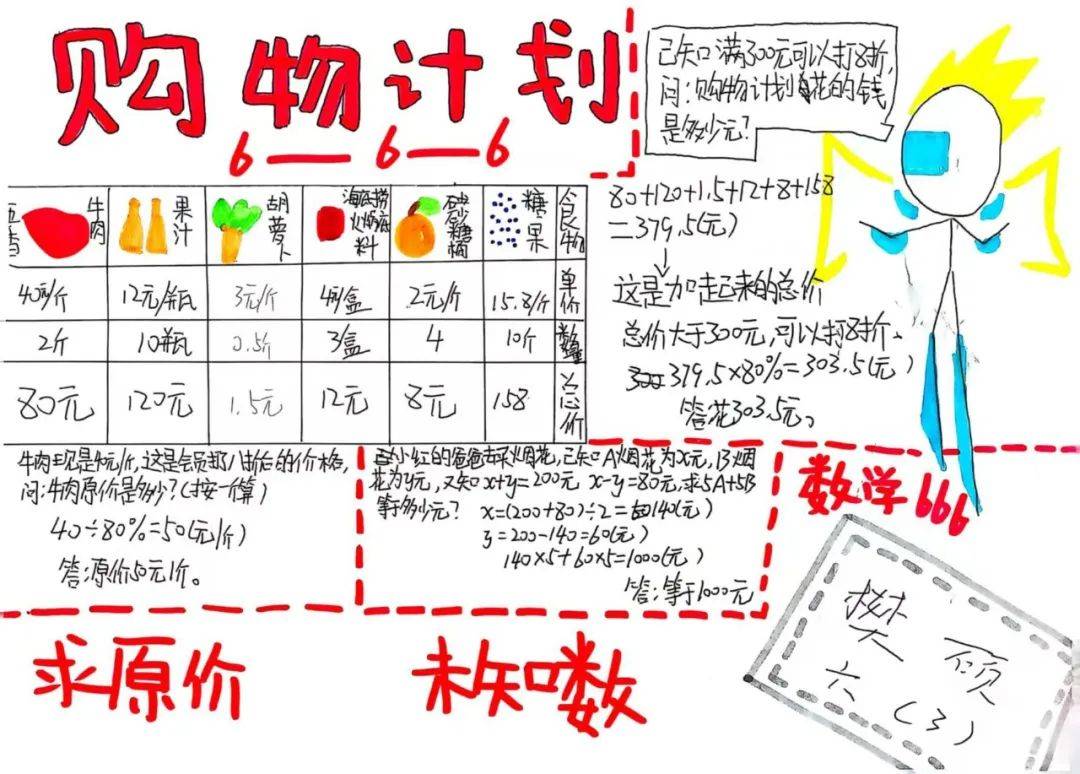 购物计划
6 — 6 — 6
已知满300元可以打8折,
问:购物计划花的钱
是多少元?
80+120+1.5+12+8+158
=379.5(元)
这是加起来的总价
总价大于300元,可以打8折、
379.5×80%=303.5(元)
答花303.5元。
牛肉 果汁 胡萝卜 海底捞火锅底料 砂糖橘 糖果 食物
40元/斤 12元/瓶 3元/斤 4元/盒 2元/斤 15.8/斤 单价
2斤 10瓶 0.5斤 3盒 4 10斤 数量
80元 120元 1.5元 12元 8元 158 总价
牛肉现是40元/斤,这是会员打八折后的价格,
问:牛肉原价是多少?(按一斤算)
40÷80%=50(元/斤)
答:原价50元1斤。
小红的爸爸去买烟花,已知A烟花为x元,B烟
花为y元,又知x+y=200元 x-y=80元,求5A+5B
等于多少元? x=(200+80)÷2=140(元)
y=200-140=60(元)
140×5+60×5=1000(元)
答:等于1000元
数学666
求原价
未知数
樊硕
六(3)